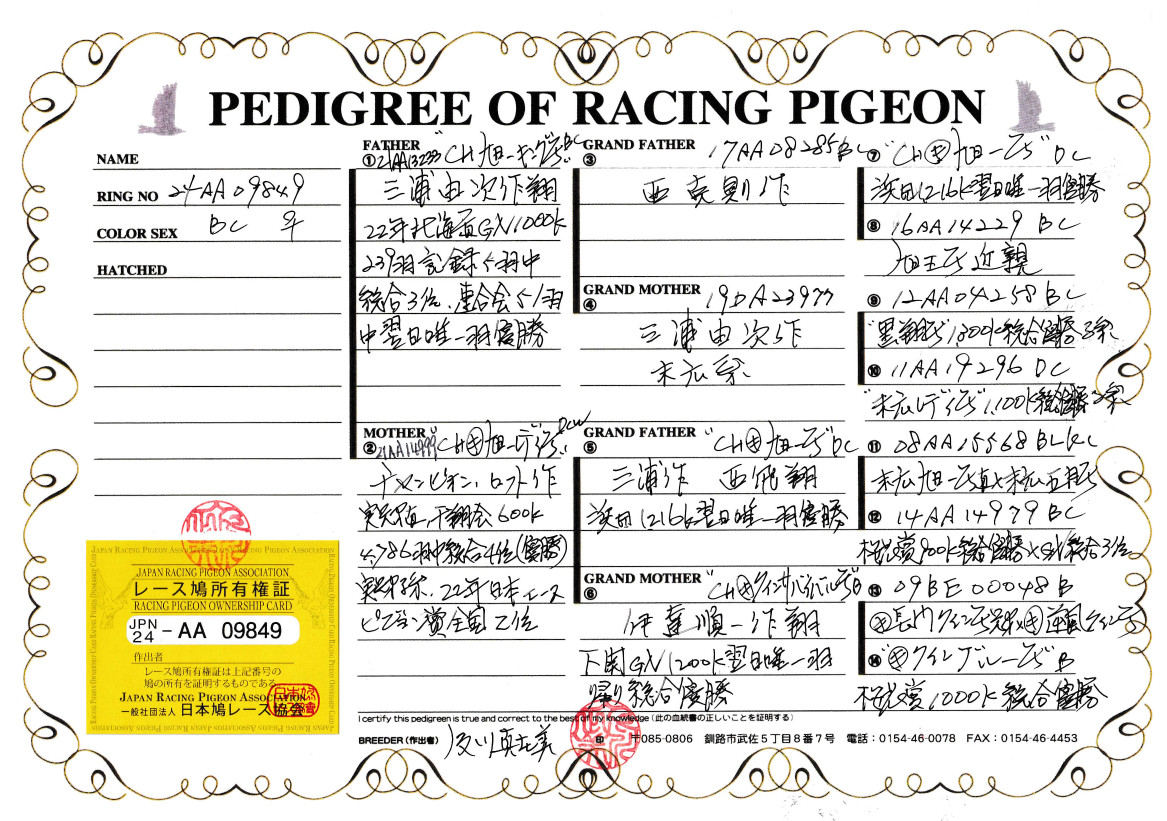 PEDIGREE OF RACING PIGEON
NAME
RING NO 24AA09849
COLOR SEX BC ♀
HATCHED
FATHER
① 21AA13233 "CH旭一キング号" BC
三浦由次作翔
22年北海道GN1000K
239羽記録5羽中
総合3位、連合会51羽
中翌日唯一羽優勝
MOTHER
② 21AA14999 "CH㊉旭一レディ号" DCW
チャンピオン、ロフト作
千翔会600K
4,786羽中総合4位(優勝)
22年日本エース
ピジョン賞全国2位
GRAND FATHER
③ 17AA08285BC
西克則作
GRAND MOTHER
④ 19DA23977
三浦由次作
末広系
GRAND FATHER
⑤ "CH㊉旭一号" DC
三浦作 西飛翔
浜田1216K翌日唯一羽優勝
GRAND MOTHER
⑥ "CH㊉クインサバイバル号" B
伊達順一作翔
下関GN1200K翌日唯一羽
帰り総合優勝
⑦ "CH㊉旭一号" DC
浜田1216K翌日唯一羽優勝
⑧ 16AA14229 BC
旭王号近親
⑨ 12AA04258 BC
"黒翔号"1,300K総合優勝3系
⑩ 11AA19296 DC
"末広レディ号"1,100K総合優勝
⑪ 08AA15568 BLKC
末広旭一号直×末広五月号
⑫ 14AA14979 BC
桜花賞900K総合優勝×総合3位
⑬ 09BE00048 B
⑭ "㊉クインブルー号" B
桜花賞1000K総合優勝
JAPAN RACING PIGEON ASSOCIATION
レース鳩所有権証
RACING PIGEON OWNERSHIP CARD
JPN 24 - AA 09849
作出者
レース鳩所有権証は上記番号の
鳩の所有を証明するものである。
JAPAN RACING PIGEON ASSOCIATION
一般社団法人 日本鳩レース協会
I certify this pedigreen is true and correct to the best of my knowledge (此の血統書の正しいことを証明する)
BREEDER (作出者) 及川真左美 印 〒085-0806 釧路市武佐5丁目8番7号 電話:0154-46-0078 FAX:0154-46-4453